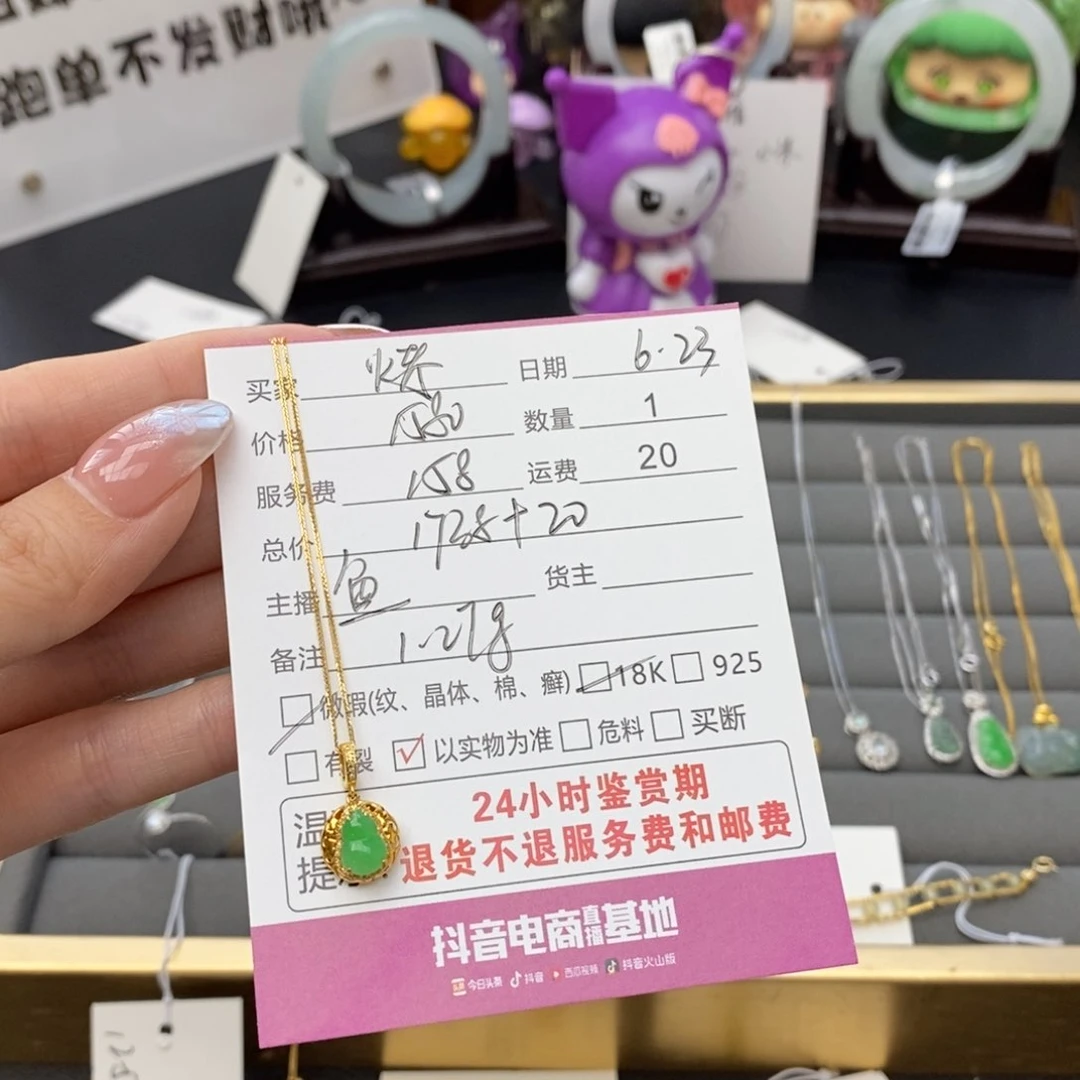 跑单不发财哦
买家 日期 6.23
价格 数量 1
服务费 158 运费 20
总价 1728+20
主播 鱼 货主
备注 1.27g
微瑕(纹、晶体、棉、癣) 18K 925
有裂 以实物为准 危料 买断
温
24小时鉴赏期
提
退货不退服务费和邮费
抖音电商直播基地
今日头条 抖音 西瓜视频 抖音火山版